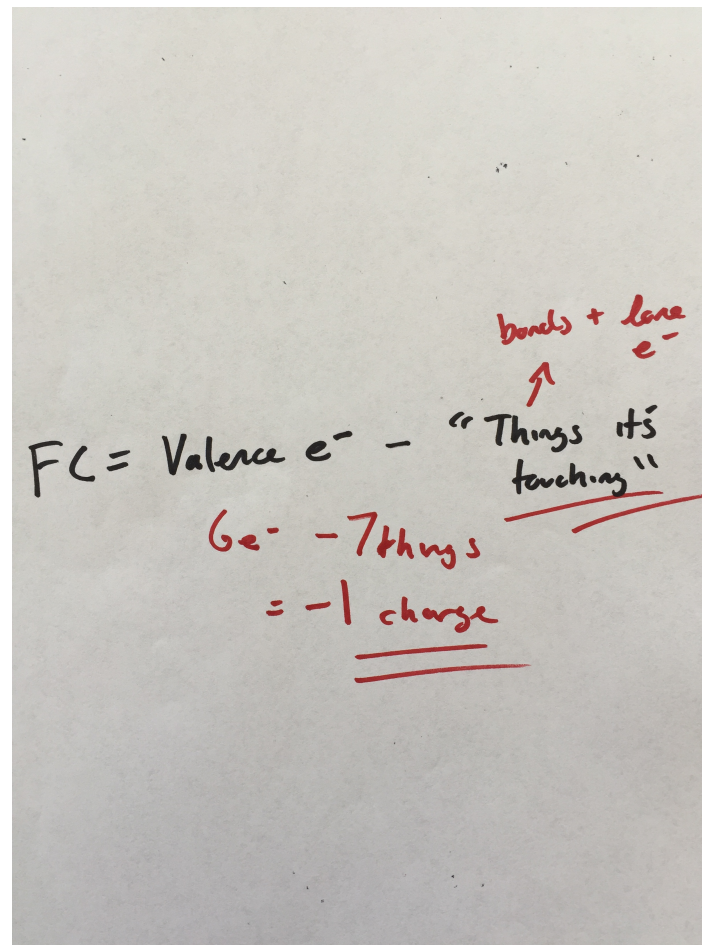 bonds + lone
e⁻
FC = Valence e⁻ - "Things it's
touching"
6e⁻ - 7 things
= -1 charge